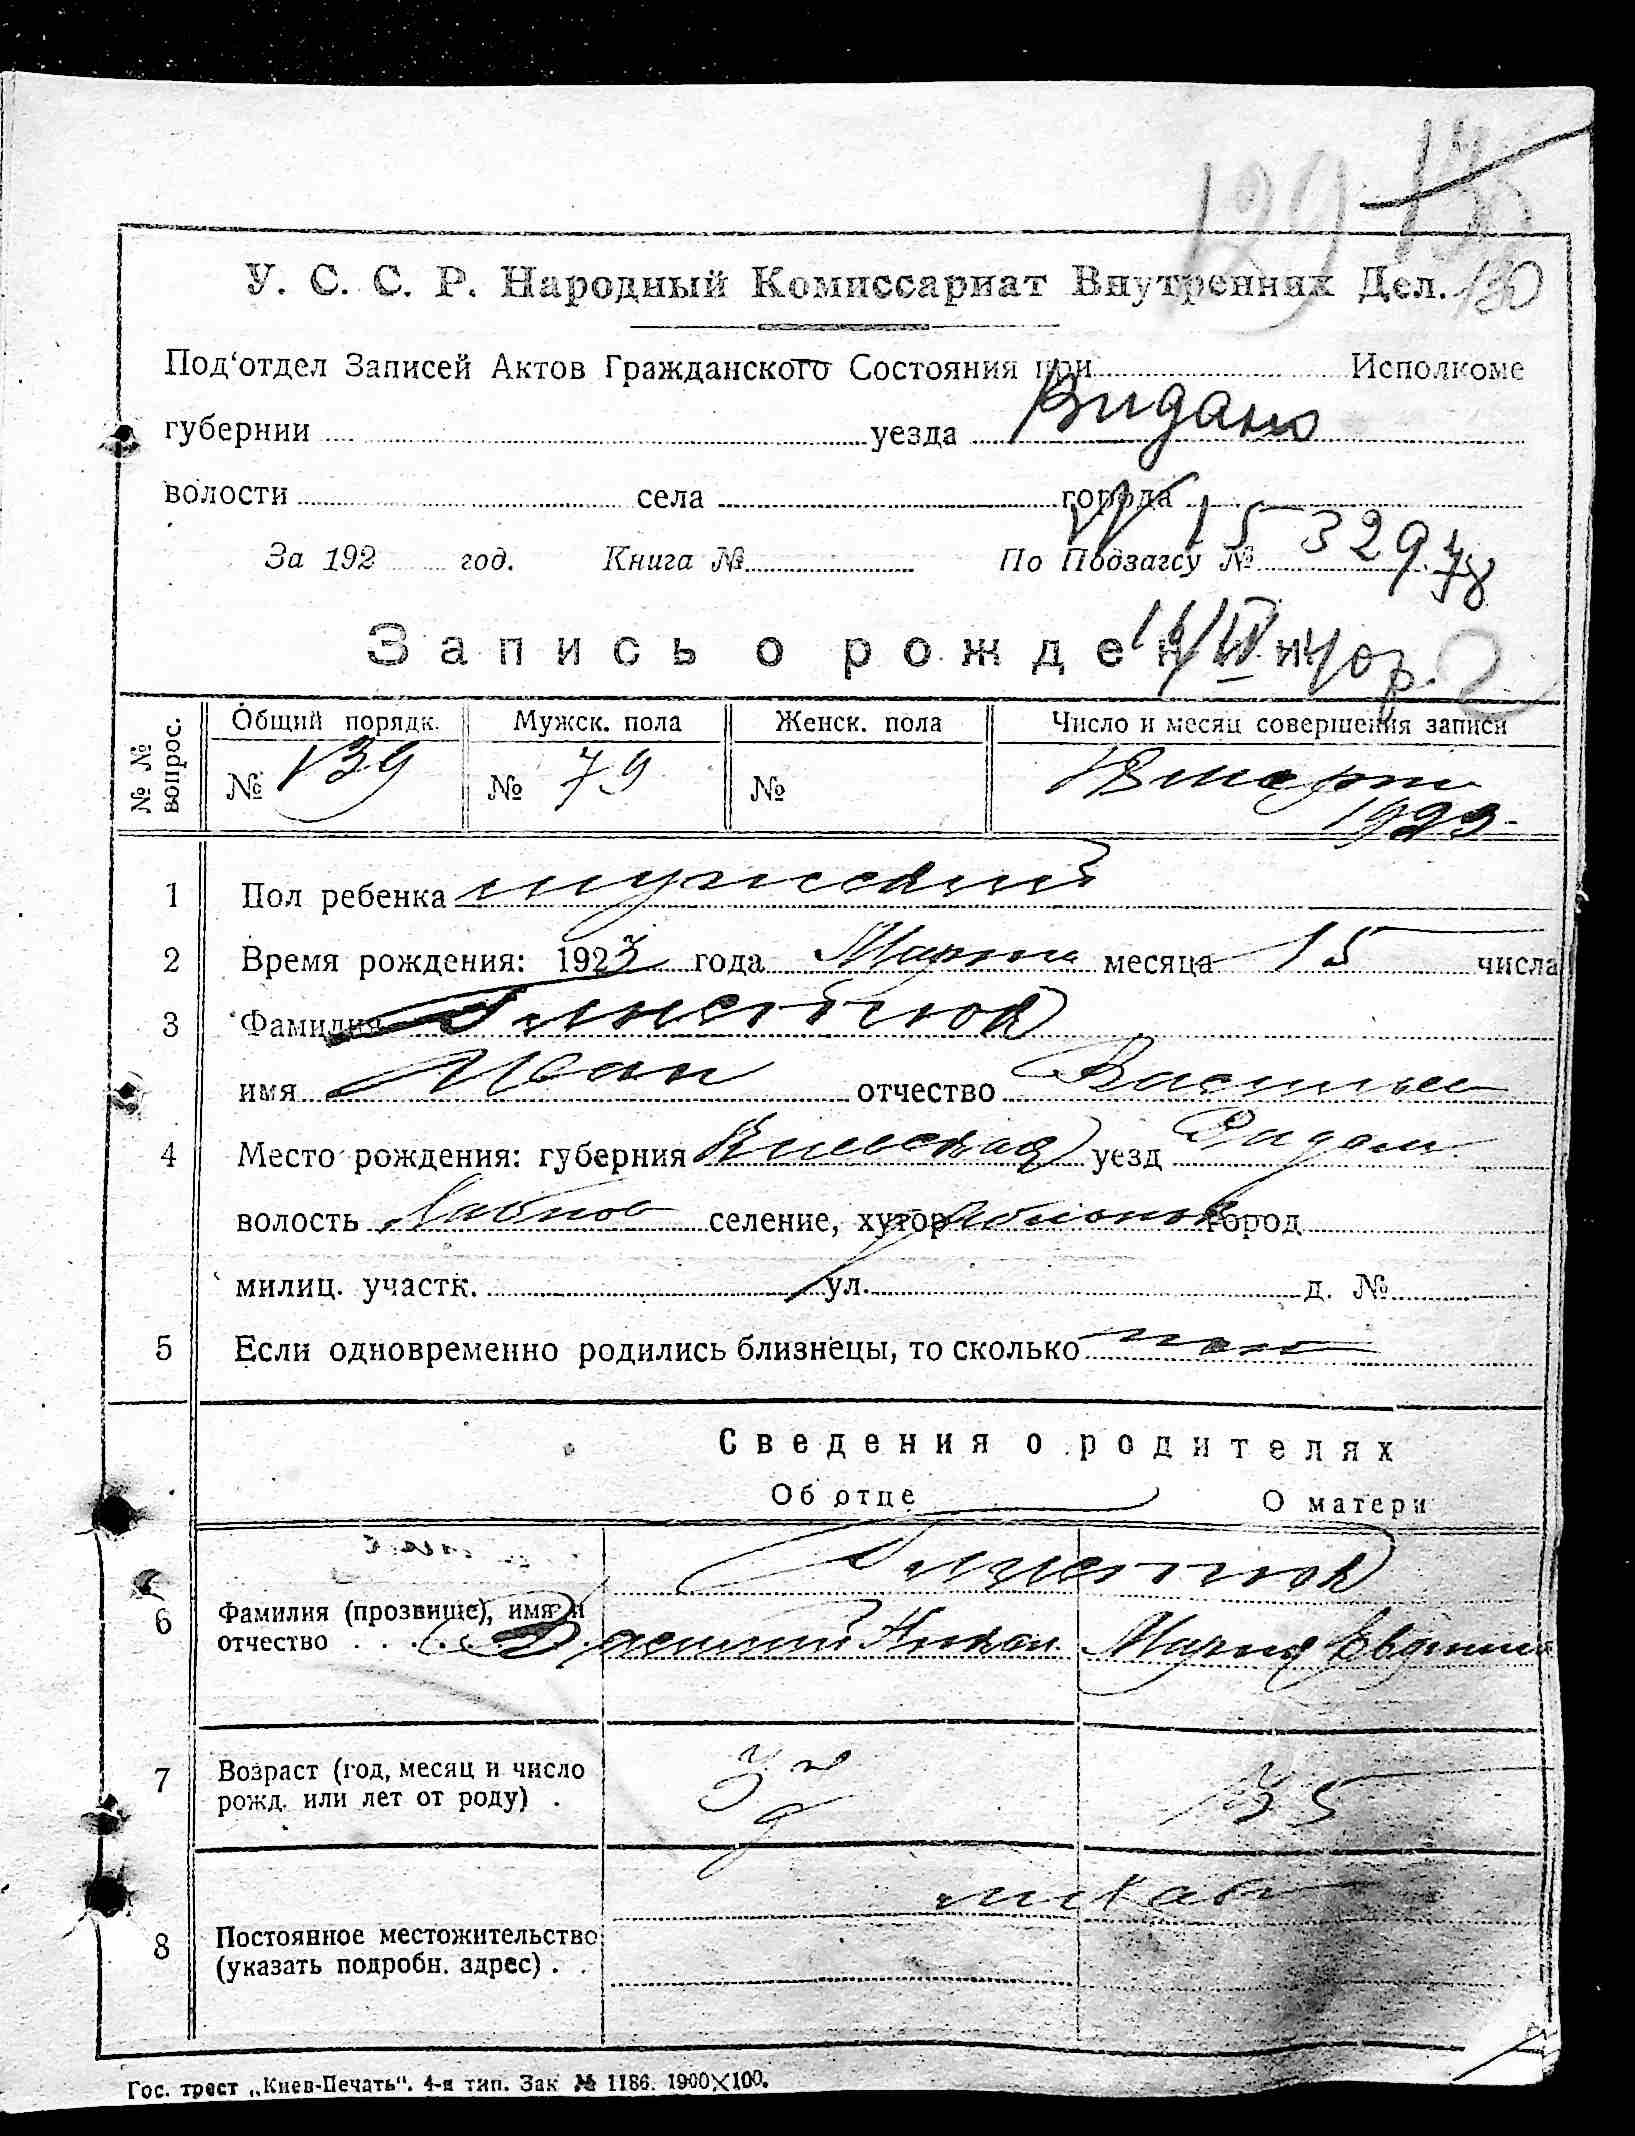 129
130
У. С. С. Р. Народный Комиссариат Внутренних Дел.
Под‘отдел Записей Актов Гражданского Состояния при Исполкоме
губернии уезда Видано
волости села города
За 192 год. Книга № По Подзагсу № 15 329478
Запись о рождении
№ № вопрос. Общий порядк. Мужск. пола Женск. пола Число и месяц совершения записи
№ 139 № 79 № марта
1923
1 Пол ребенка мужской
2 Время рождения: 1923 года Марта месяца 15 числа
3 Фамилия
имя Иван отчество Василье
4 Место рождения: губерния Киевская уезд
волость селение, хутор город
милиц. участк. ул. д. №
5 Если одновременно родились близнецы, то сколько
Сведения о родителях
Об отце О матери
6 Фамилия (прозвище), имя и
отчество . . . Василий Мария
7 Возраст (год, месяц и число
рожд. или лет от роду) . 35
8 Постоянное местожительство
(указать подробн. адрес) . .
Гос. трест „Киев-Печать“. 4-я тип. Зак № 1186. 1900×100.